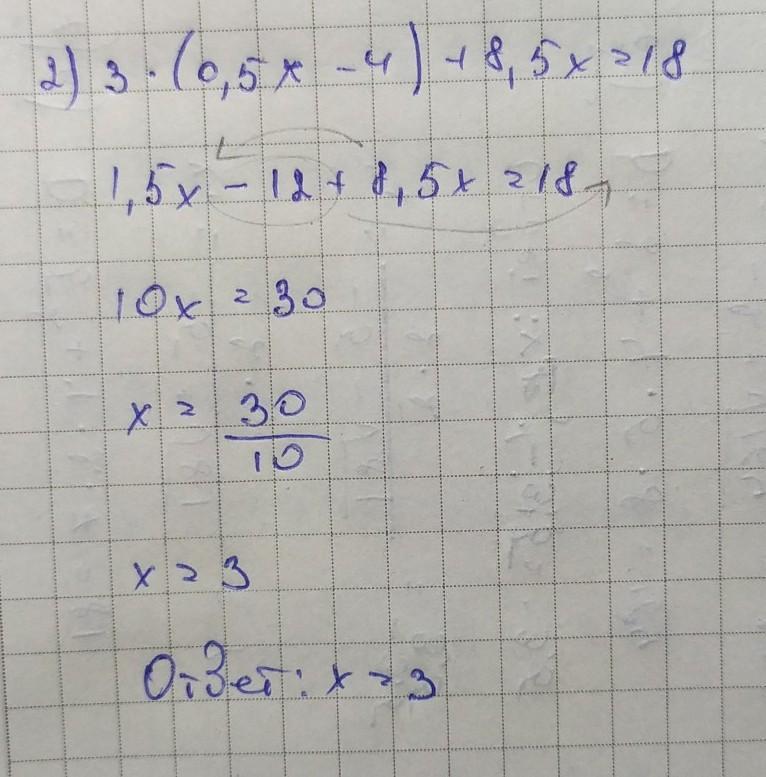 2) 3·(0,5x - 4) + 8,5x = 18
1,5x - 12 + 8,5x = 18
10x = 30
x = 30/10
x = 3
Ответ: x = 3